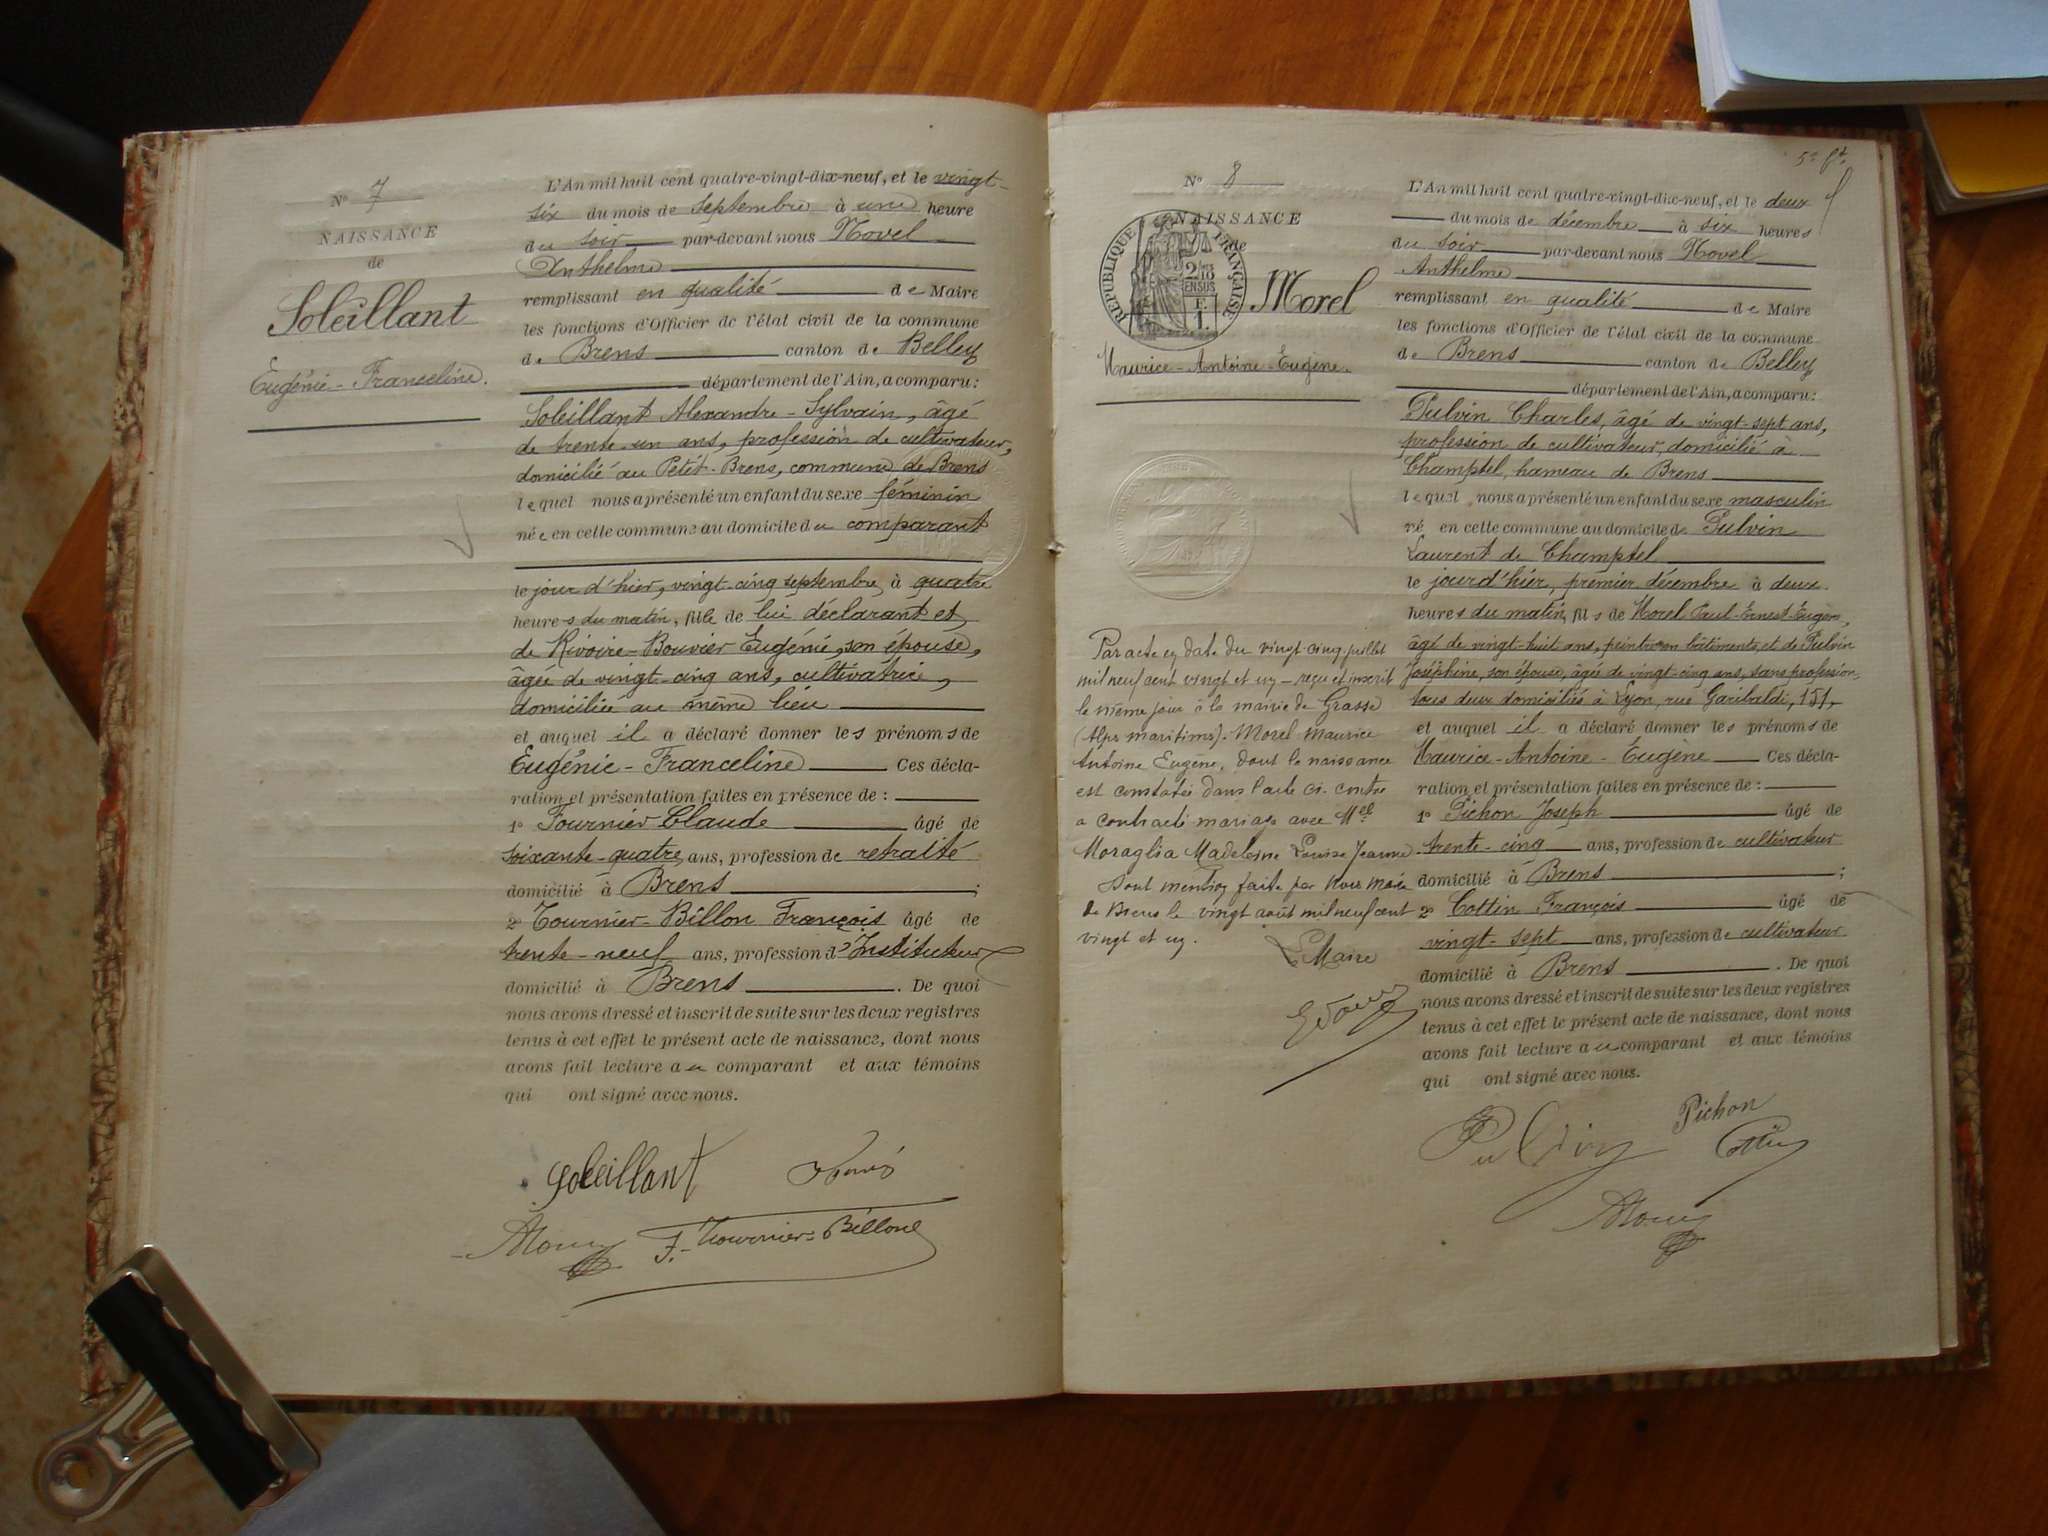 N° 7
NAISSANCE
de
Soleillant
Eugénie-Franceline.
L'An mil huit cent quatre-vingt-dix-neuf, et le vingt-
six du mois de Septembre à une heure
du soir par-devant nous Novel
Anthelme
remplissant en qualité de Maire
les fonctions d'Officier de l'état civil de la commune
de Brens canton de Belley
département de l'Ain, a comparu:
Soleillant Alexandre-Sylvain, âgé
de trente un ans, profession de cultivateur,
domicilié au Petit-Brens, commune de Brens
lequel nous a présenté un enfant du sexe féminin
née en cette commune au domicile du comparant
le jour d'hier, vingt-cinq septembre, à quatre
heures du matin, fille de lui déclarant et
de Rivoire-Bouvier Eugénie, son épouse,
âgée de vingt-cinq ans, cultivatrice,
domiciliée au même lieu
et auquel il a déclaré donner les prénoms de
Eugénie-Franceline Ces décla-
ration et présentation faites en présence de:
1° Fournier Claude âgé de
soixante-quatre ans, profession de retraité
domicilié à Brens ;
2° Tournier-Billon François âgé de
trente-neuf ans, profession d'Instituteur
domicilié à Brens . De quoi
nous avons dressé et inscrit de suite sur les deux registres
tenus à cet effet le présent acte de naissance, dont nous
avons fait lecture au comparant et aux témoins
qui ont signé avec nous.
Soleillant
F. Tournier-Billon
5e ft
N° 8
NAISSANCE
de
RÉPUBLIQUE FRANÇAISE
2 10mes
EN SUS
F.
1.
Morel
Maurice-Antoine-Eugène.
L'An mil huit cent quatre-vingt-dix-neuf, et le deux
du mois de décembre à six heures
du soir par-devant nous Novel
Anthelme
remplissant en qualité de Maire
les fonctions d'Officier de l'état civil de la commune
de Brens canton de Belley
département de l'Ain, a comparu:
Pulvin Charles, âgé de vingt-sept ans,
profession de cultivateur, domicilié à
Champtel, hameau de Brens
lequel nous a présenté un enfant du sexe masculin
né en cette commune au domicile de Pulvin
Laurent de Champtel
le jour d'hier, premier décembre à deux
heures du matin, fils de Morel Paul-Ernest-Eugène,
âgé de vingt-huit ans, peintre en bâtiments, et de Pulvin
Joséphine, son épouse, âgée de vingt-cinq ans, sans profession,
tous deux domiciliés à Lyon, rue Garibaldi, 151,
et auquel il a déclaré donner les prénoms de
Maurice-Antoine-Eugène Ces décla-
ration et présentation faites en présence de:
1° Pichon Joseph âgé de
trente-cinq ans, profession de cultivateur
domicilié à Brens ;
2° Cottin François âgé de
vingt-sept ans, profession de cultivateur
domicilié à Brens . De quoi
nous avons dressé et inscrit de suite sur les deux registres
tenus à cet effet le présent acte de naissance, dont nous
avons fait lecture au comparant et aux témoins
qui ont signé avec nous.
Par acte en date du vingt cinq juillet
mil neuf cent vingt et un – reçu et inscrit
le même jour à la mairie de Grasse
(Alps maritims). Morel Maurice
Antoine Eugène, dont la naissance
est constatée dans l'acte ci-contre
a contracté mariage avec Melle
Moraglia Madeleine Louise Jeanne
Dont mention faite par nous maire
de Brens le vingt août mil neuf cent
vingt et un.
Le Maire
Pulvin
Pichon
Cottin